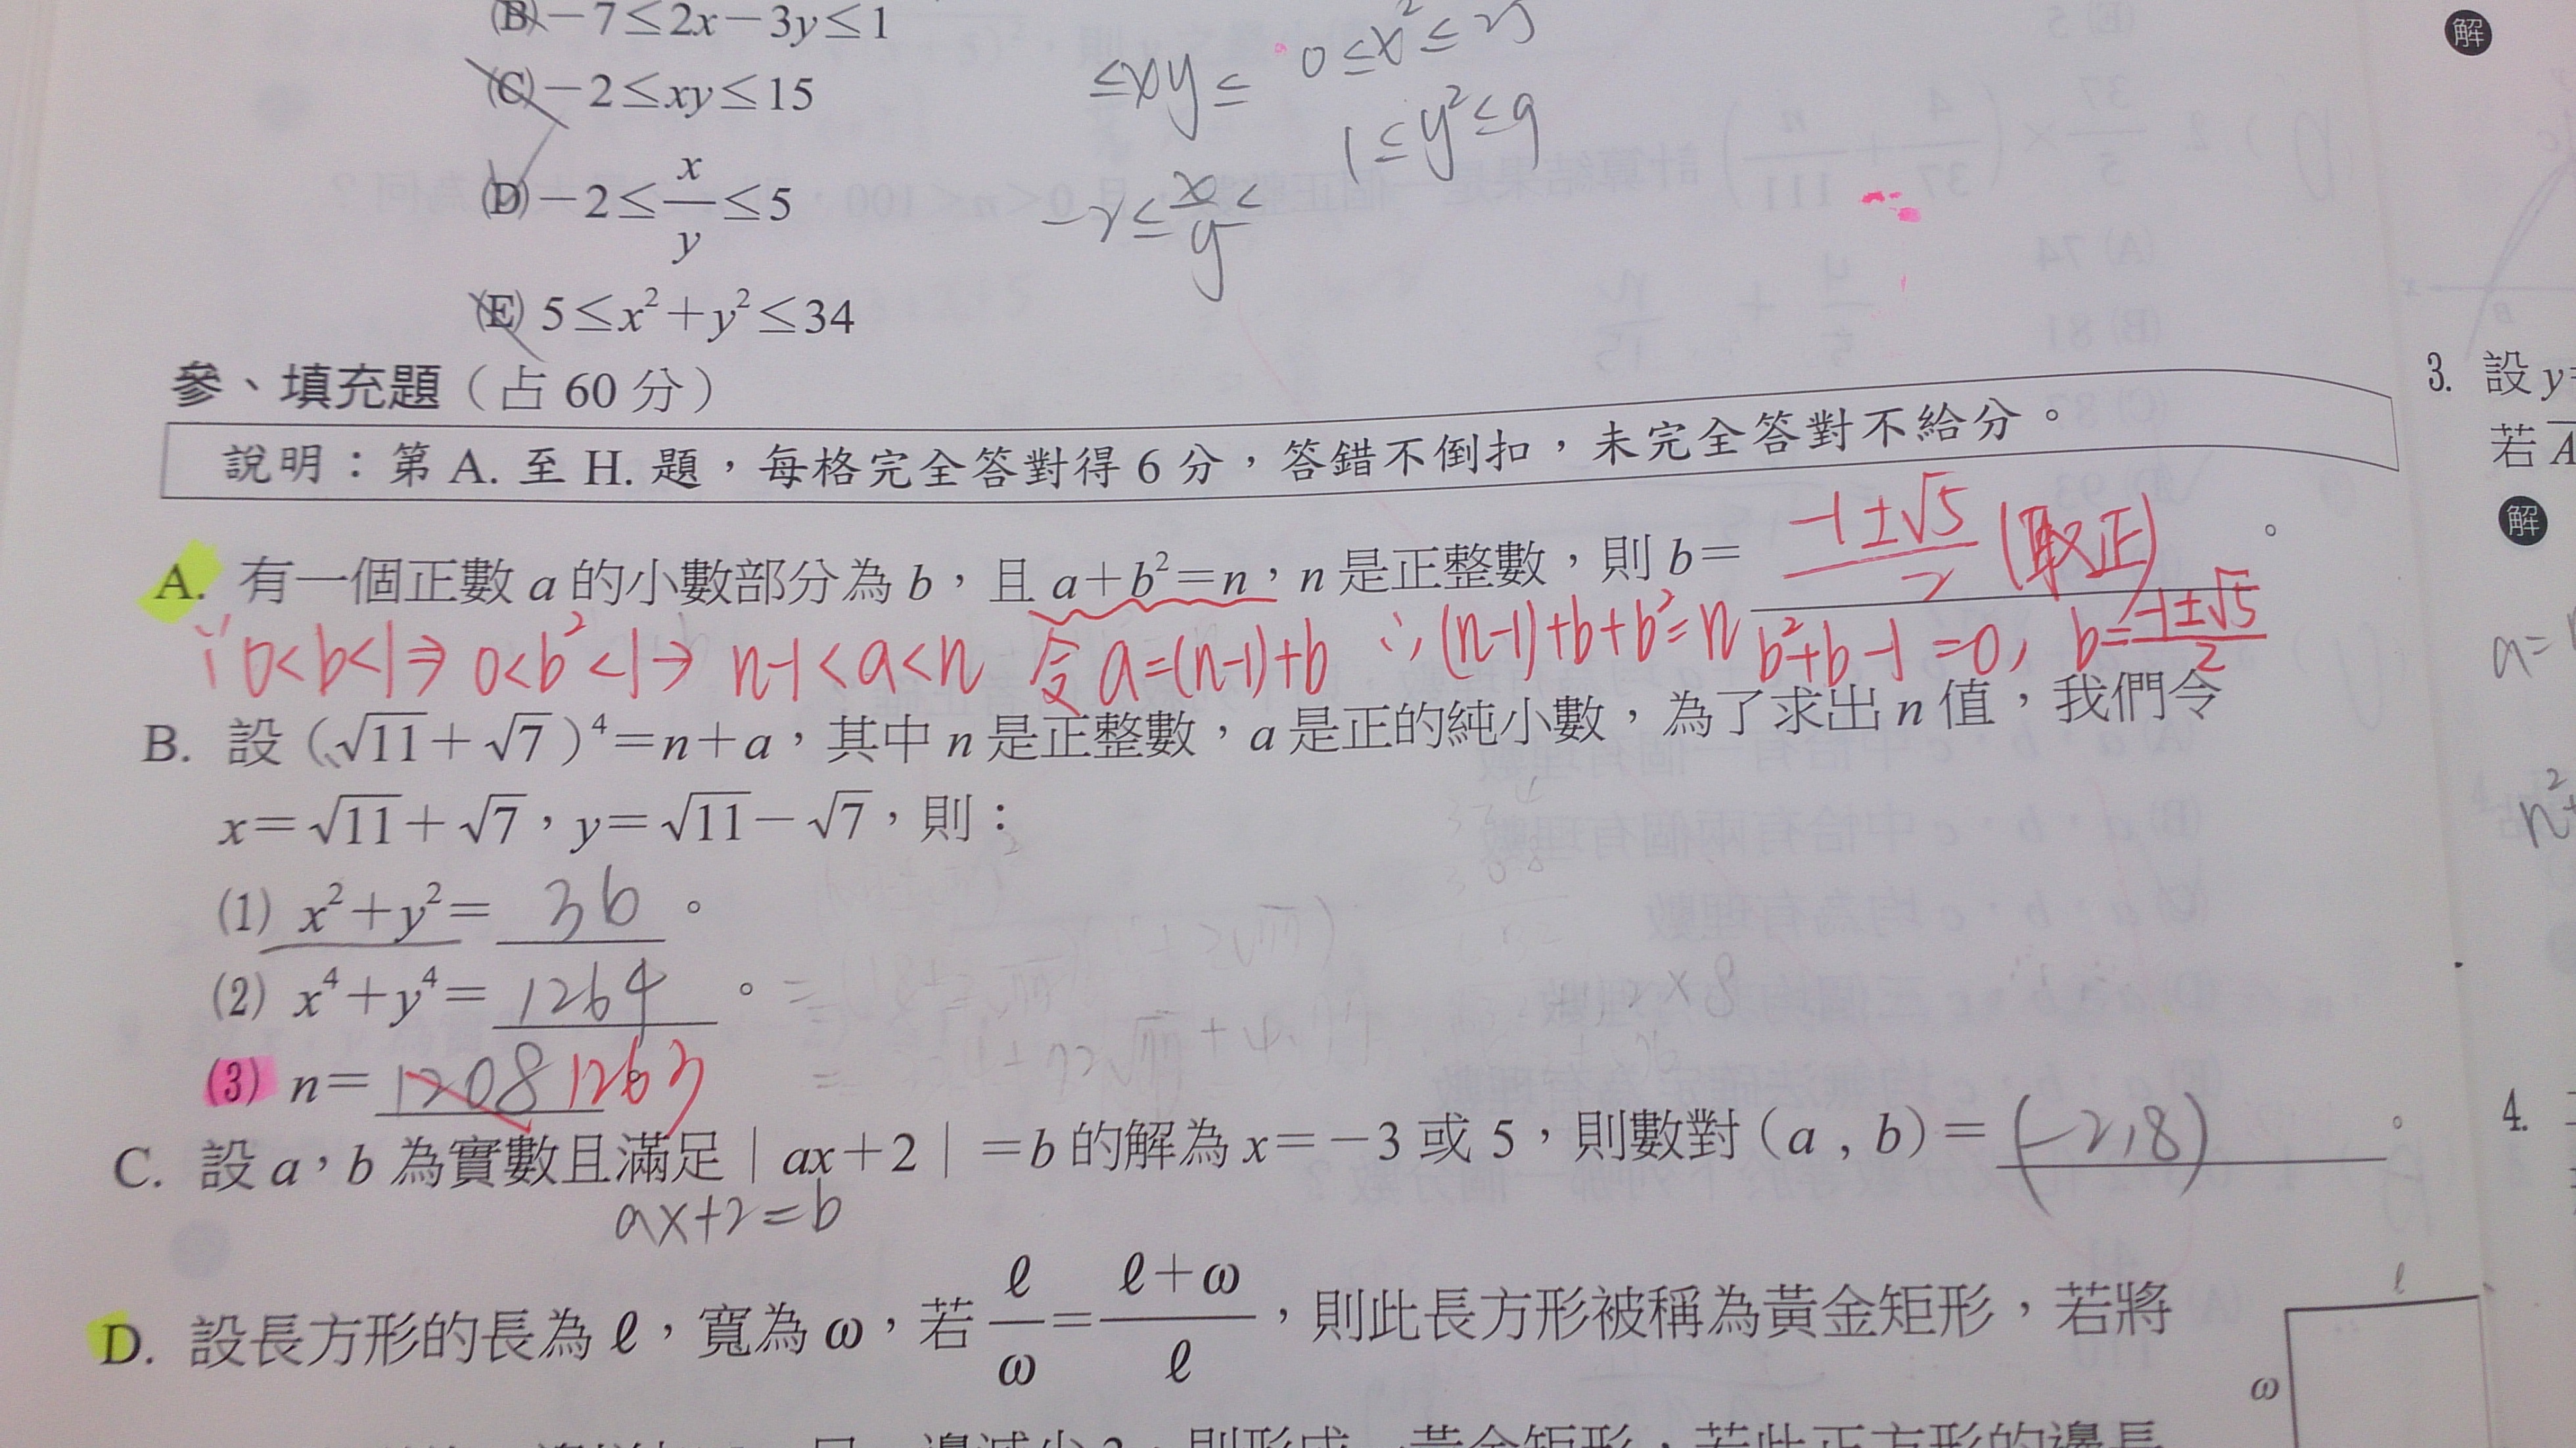 (B) −7≤2x−3y≤1
(C) −2≤xy≤15
(D) −2≤x/y≤5
(E) 5≤x²+y²≤34
≤xy≤
0≤x²≤25
1≤y²≤9
−2≤x/y≤
參、填充題（占 60 分）
說明：第 A. 至 H. 題，每格完全答對得 6 分，答錯不倒扣，未完全答對不給分。
A. 有一個正數 a 的小數部分為 b，且 a+b²=n，n 是正整數，則 b= (−1±√5)/2 (取正)。
∵ 0<b<1⇒ 0<b²<1→ n-1<a<n 令 a=(n-1)+b ∴(n-1)+b+b²=n b²+b-1=0, b=(-1±√5)/2
B. 設（√11+√7）⁴=n+a，其中 n 是正整數，a 是正的純小數，為了求出 n 值，我們令
x=√11+√7，y=√11−√7，則：
(1) x²+y²= 36 。
(2) x⁴+y⁴= 1264 。
(3) n= 1208 1263
C. 設 a，b 為實數且滿足｜ax+2｜=b 的解為 x=−3 或 5，則數對（a , b）= (−2,8) 。
ax+2=b
D. 設長方形的長為 ℓ，寬為 ω，若 ℓ/ω=(ℓ+ω)/ℓ，則此長方形被稱為黃金矩形，若將
ℓ
ω
解
3. 設 y
若 A
解
a=
n²+
4.